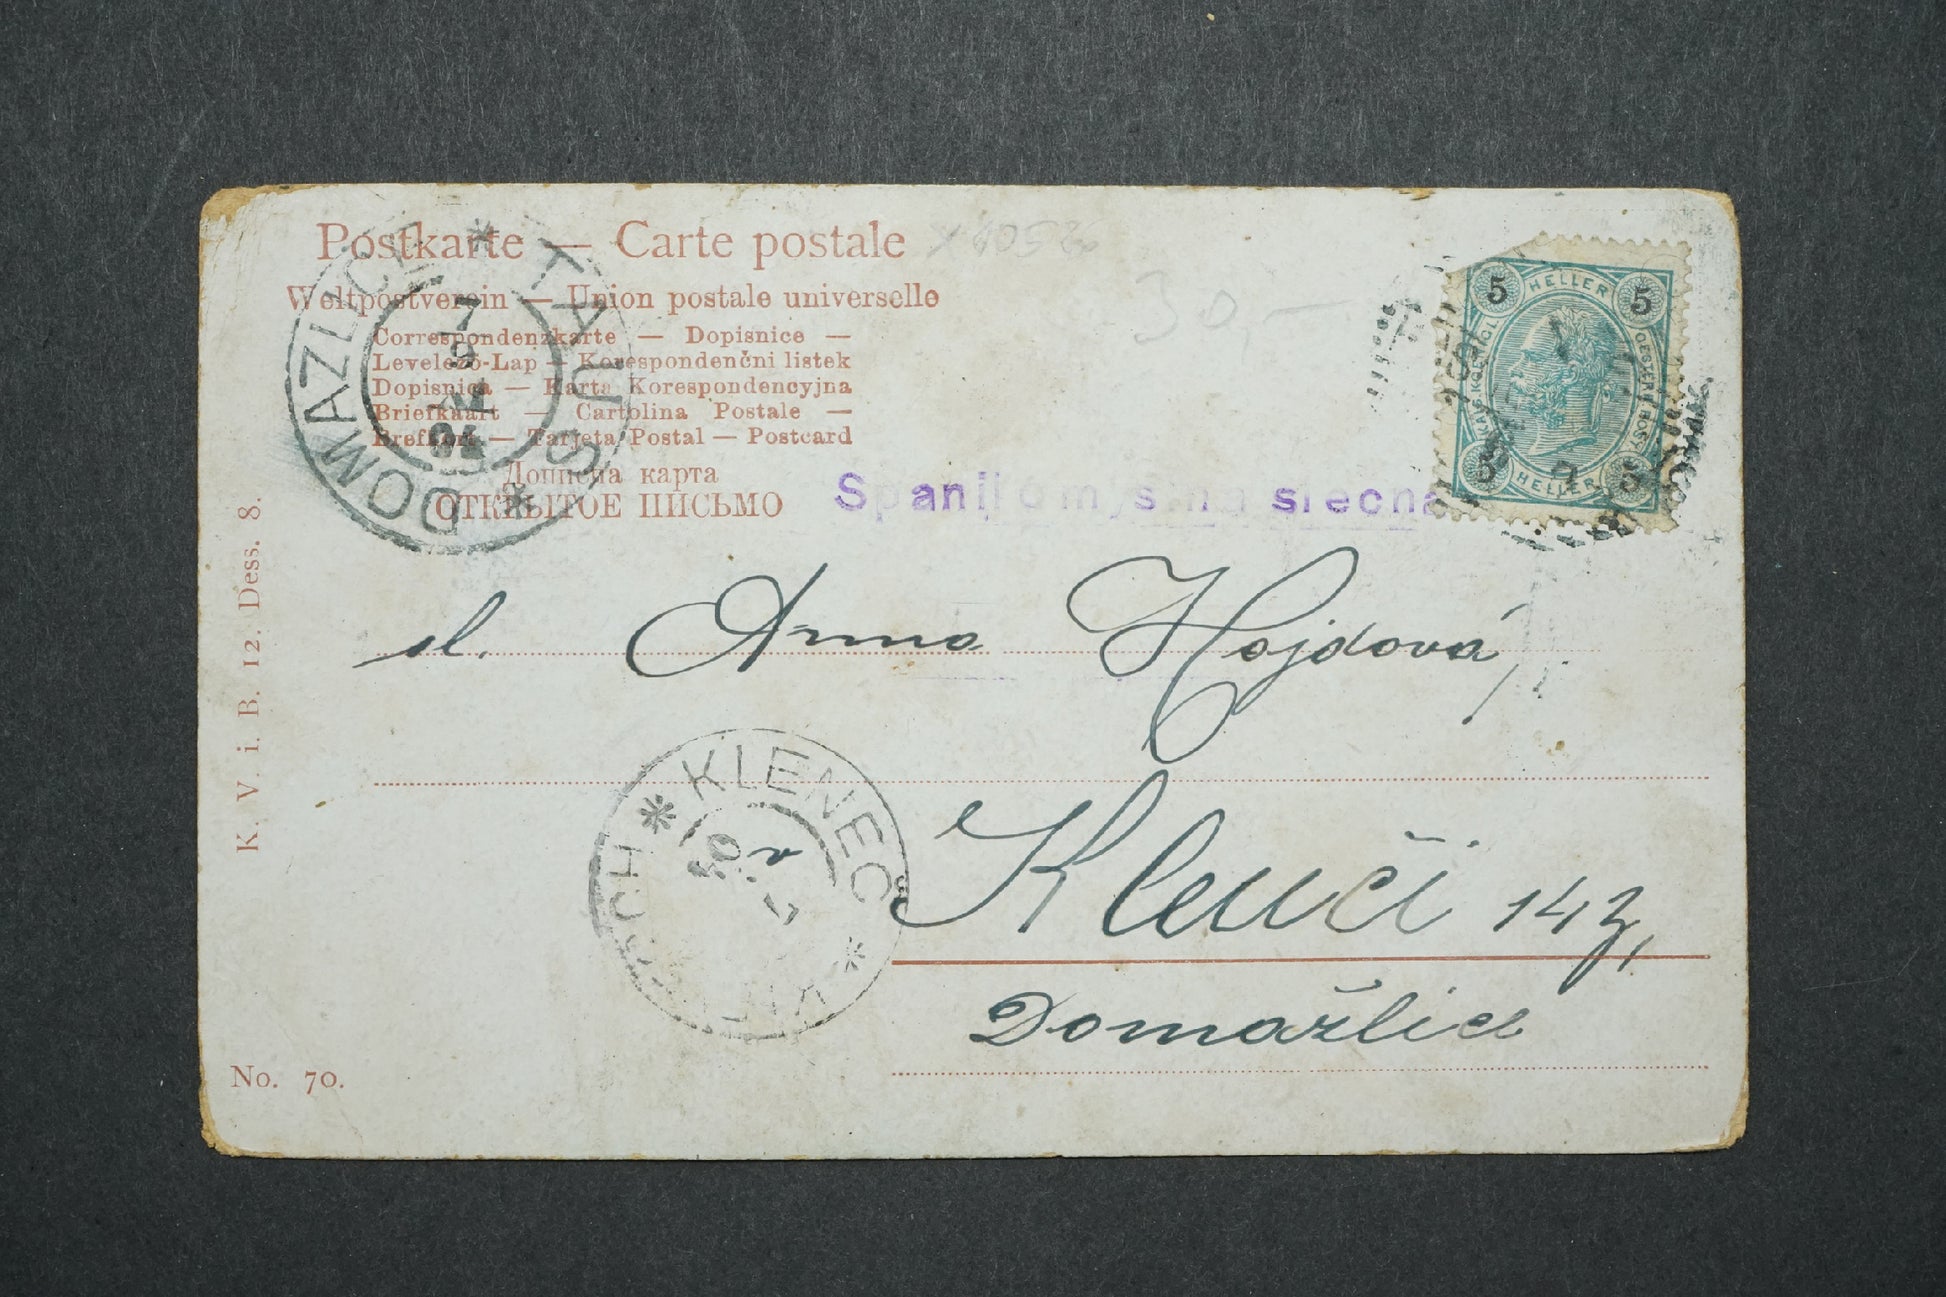 Postkarte — Carte postale
Weltpostverein — Union postale universelle
Correspondenzkarte — Dopisnice —
Levelező-Lap — Korespondenčni listek
Dopisnica — Karta Korespondencyjna
Briefkaart — Cartolina Postale —
Brefkort — Tarjeta Postal — Postcard
Дописна карта
ОТКРЫТОЕ ПИСЬМО
DOMAZLICE * TAUS *
7 9
04
30,-
5 HELLER 5
KAIS. KOENIGL. OESTERR. POST
5 HELLER 5
slečna
sl. Anna Hojdová,
* KLENEČ *
04
Klenčí 14z,
Domažlice
K. V. i. B. 12. Dess. 8.
No. 70.